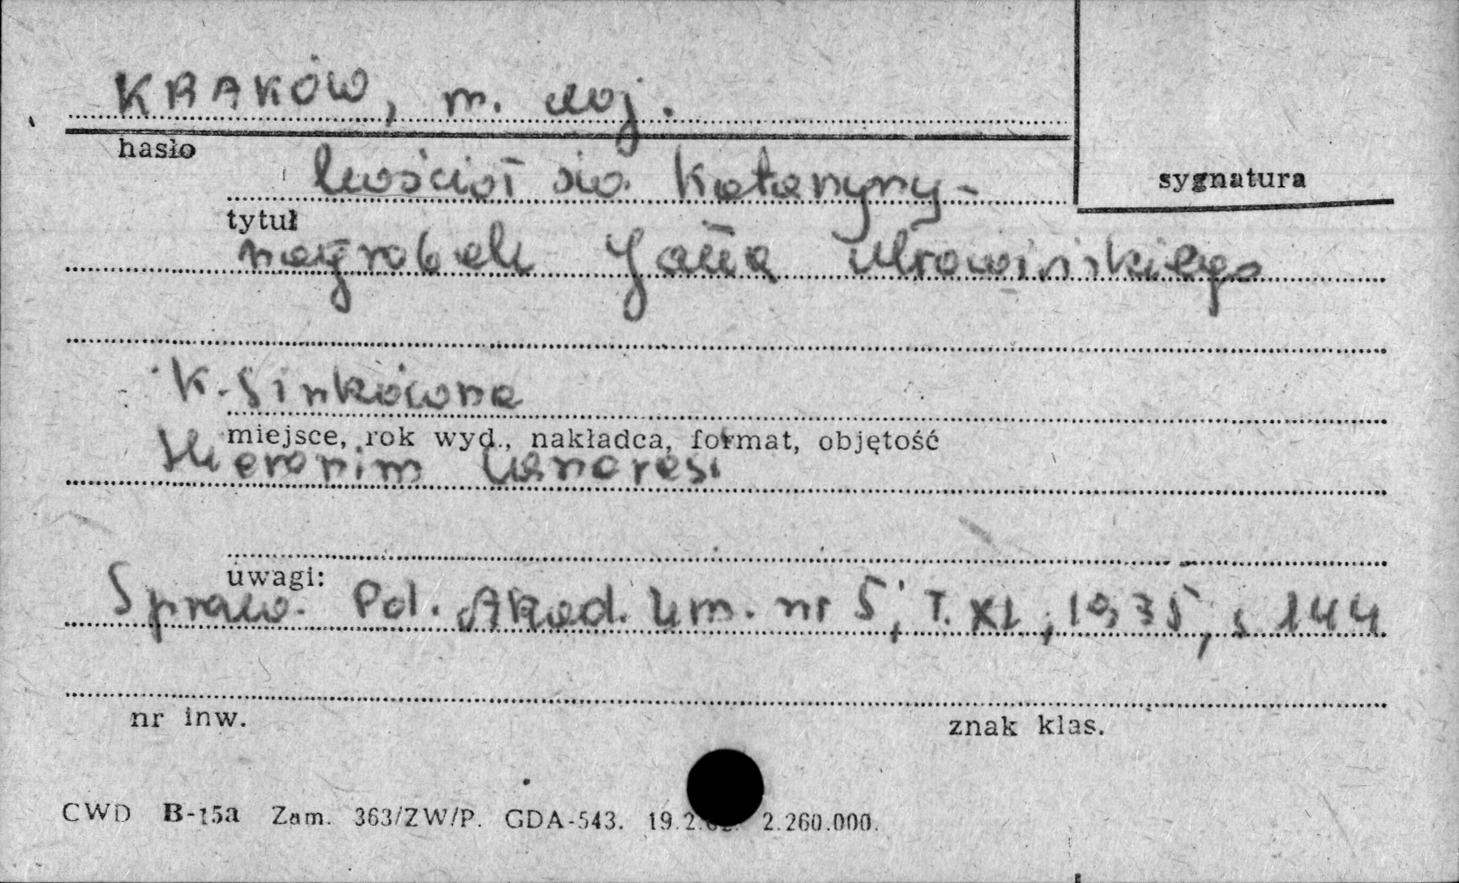 KRAKÓW, m. woj.
hasło
kościół św. Katarzyny -
sygnatura
tytuł
nagrobek Jana Mrowińskiego
K. Sinkówna
miejsce, rok wyd., nakładca, format, objętość
Hieronim Canavesi
uwagi:
Spraw. Pol. Akad. Um. nr 5; T. XL; 1935, s 144
nr inw.
znak klas.
CWD B-15a Zam. 363/ZW/P. GDA-543. 19.2. 2.260.000.